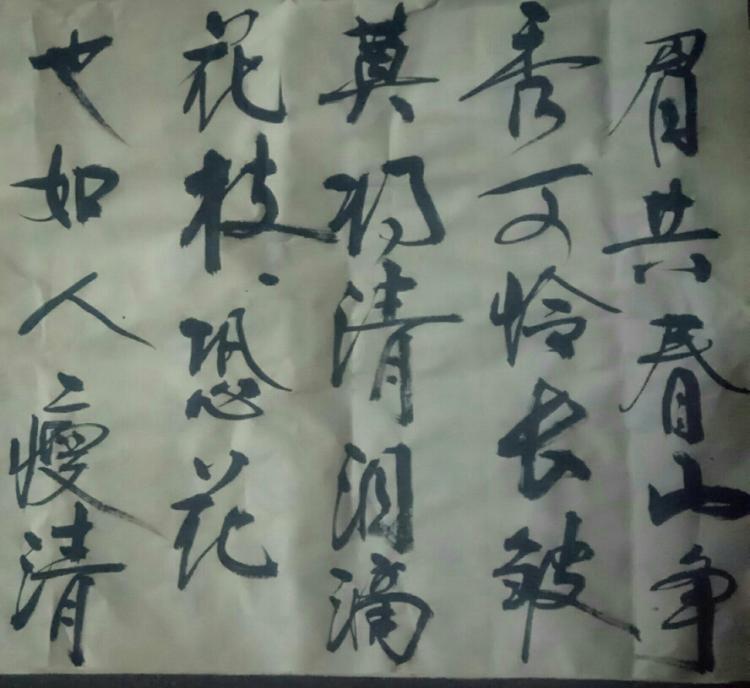 眉共春山争
秀可怜长皱
莫将清泪滴
花枝恐花
也如人瘦清